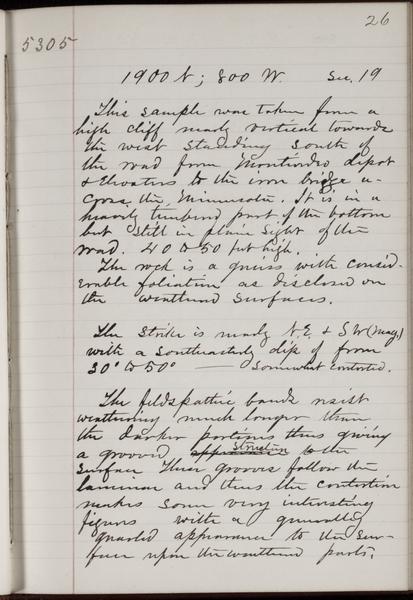 26
5305
1900 N; 800 W Sec. 19
This sample was taken from a
high cliff nearly vertical towards
the west standing south of
the road from Montivideo depot
& Elevators to the iron bridge a-
cross the Minnesota. It is in a
heavily timbered part of the bottom
but still in plain sight of the
road. 40 to 50 feet high.
The rock is a gneiss with consid-
erable foliation as disclosed on
the weathered surfaces.
The Strike is nearly N.E. & S W (mag.)
with a southeasterly dip of from
30° to 50° — Somewhat contorted.
The feldspathic bands resist
weathering much longer than
the darker portions thus giving
a grooved appearance structure to the
surface These grooves follow the
laminae and thus the contortion
makes some very interesting
figures with a generally
gnarled appearance to the sur-
face upon the weathered parts.